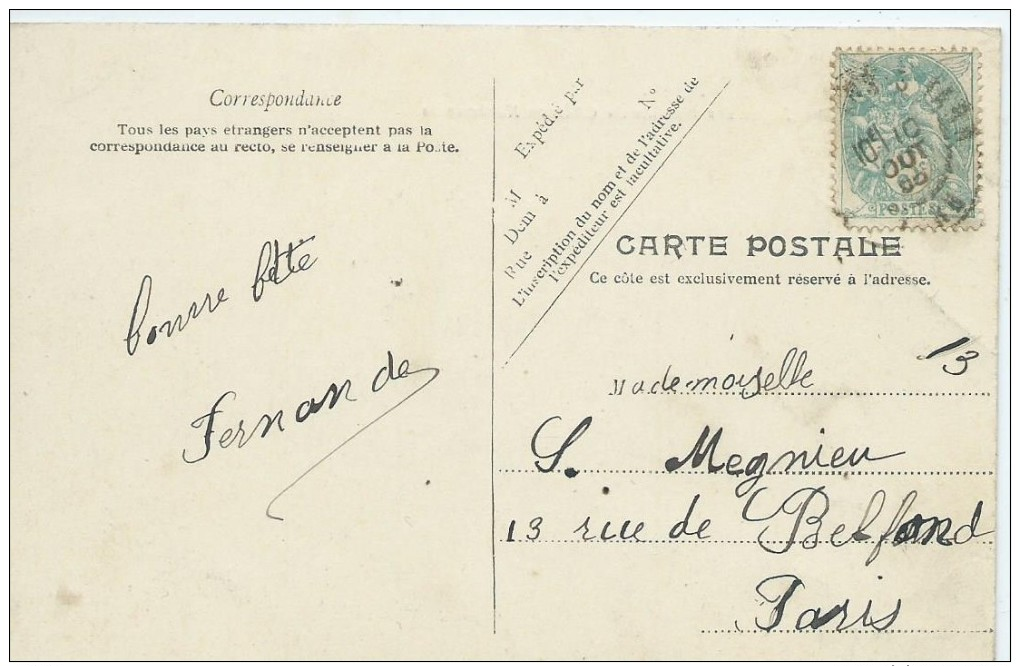 Correspondance
Tous les pays etrangers n'acceptent pas la
correspondance au recto, se renseigner a la Poste.
bonne fête
Fernande
Expédié par
M
Dem à
Rue
N°
L'inscription du nom et de l'adresse de
l'expéditeur est facultative.
POSTES
10
OCT
CARTE POSTALE
Ce côte est exclusivement réservé à l'adresse.
13
Mademoiselle
S. Megnieu
13 rue de Belfond
Paris